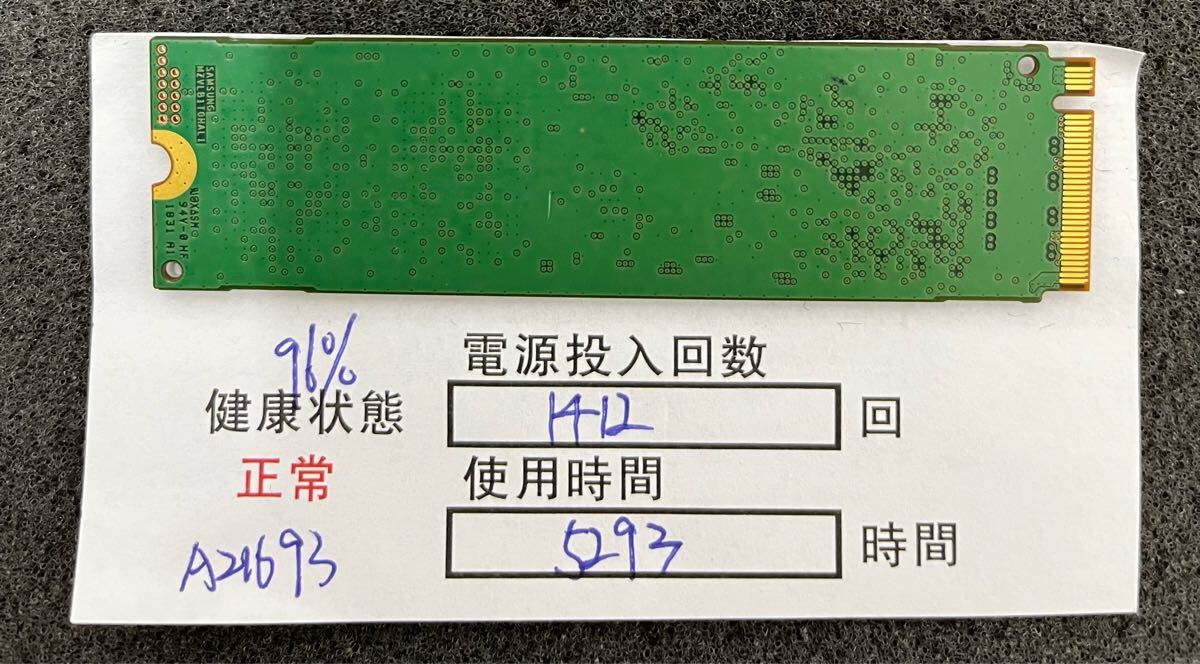 SAMSUNG
MZVLB1T0HALI
94V-0 MF
1831 A1
96%
健康状態
正常
A21693
電源投入回数
1412 回
使用時間
5293 時間